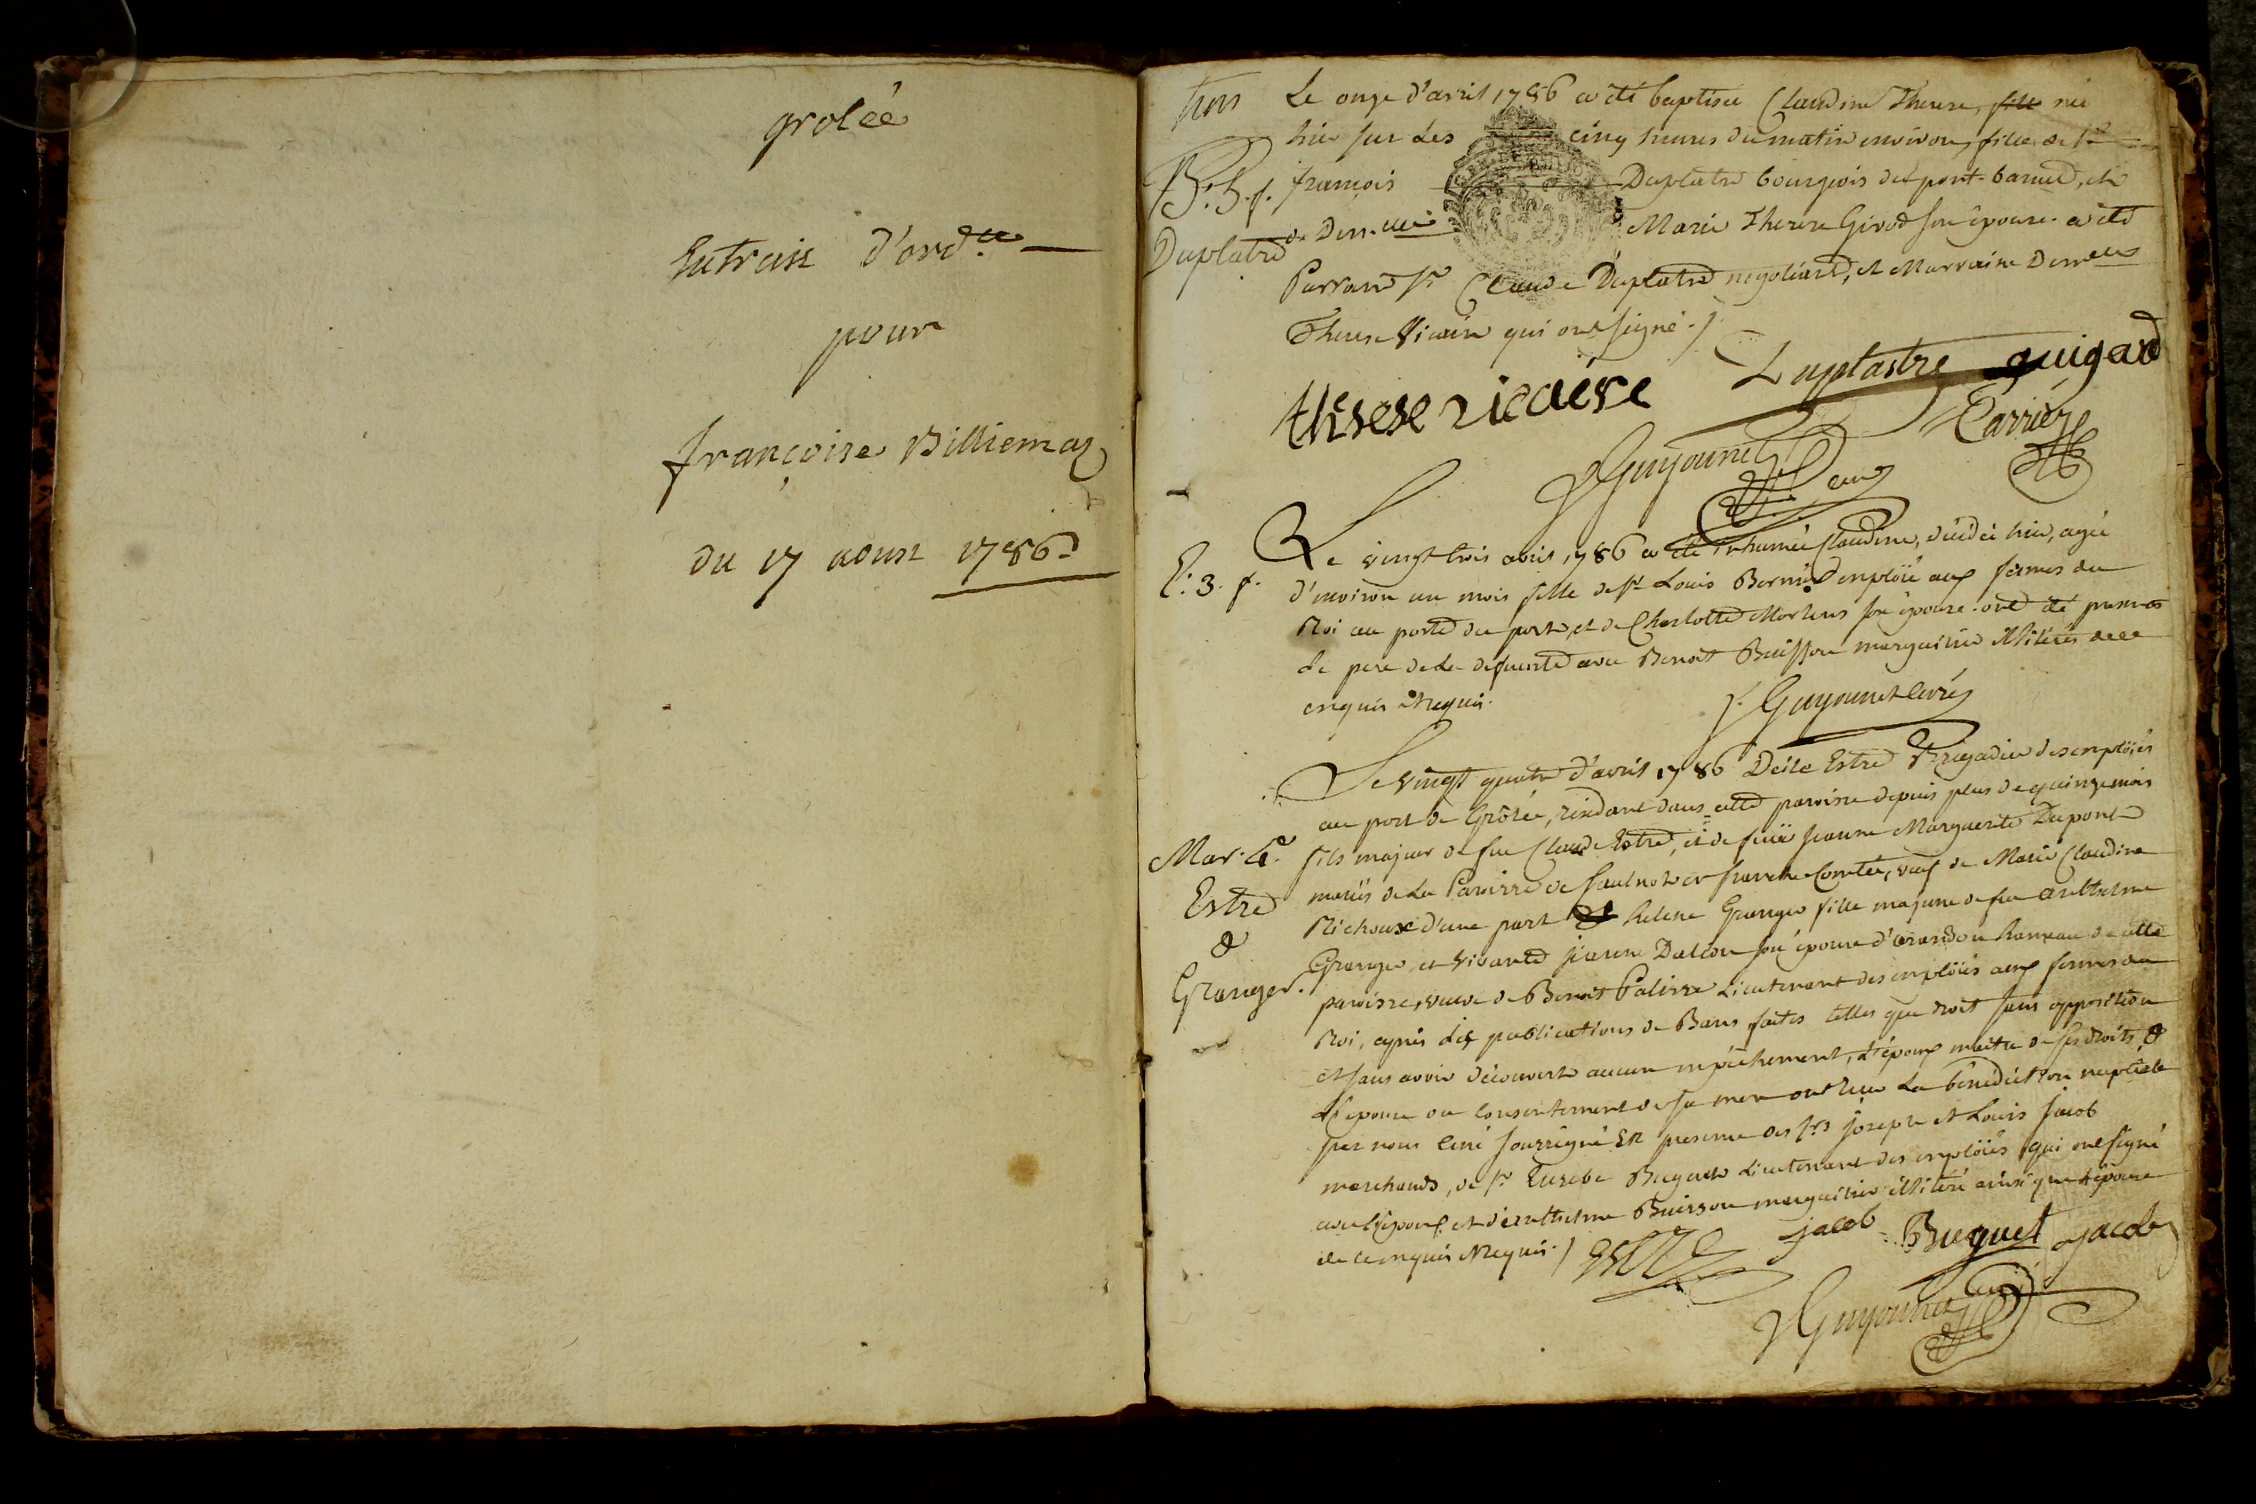 grolée
Extrait d'ord.ce
pour
françoise Billiemaz
du 17 aoust 1786
trois
Le onze d'avril 1786 a été baptisée Claudine Therese, fille née
hier sur les cinq heures du matin environ, fille de Sr
B. 3. f. françois Duplatre bourgeois de pont-
Duplatre & Dem.elle Marie Therese Girod son épouse. a été
Parrain Sr Claude Duplatre negotiant, et Marraine Dem.elle
Therese qui ont signé ./
Duplastre guigard
thérese
Carrier
Guyonnet
Curé
Le vingt trois avril 1786 a été inhumée Claudine, décédée hier, agée
E. 3. f. d'environ un mois fille de Sr Louis emploïé aux fermes du
Roi au poste du port et de Charlotte son épouse. ont été presents
le pere de la defunte avec Benoit Buisson marguillier illiterés de ce
enquis et requis.
Guyonnet curé
Le vingt quatre d'avril 1786 Deile Estre Brigadier des emploïés
au port de Grôlée, residant dans cette paroisse depuis plus de quinze mois
Mar. 4e. fils majeur de feu Claude Estre, et de feuë Jeanne Marguerite Dupont
Estre mariés de la Paroisse de Saulnot en franche Comté, veuf de Marie Claudine
& Richoux d'une part & helene Granger fille majeure de feu Anthelme
Granger. Granger et vivante Jeanne son épouse hameau de cette
paroisse, veuve de Benoit Palisse Lieutenant des emploïés aux fermes du
Roi, après les publications de Bans faites telles que droit sans opposition
et sans avoir découvert aucun empêchement, L'époux maitre de ses droits &
L'épouse du consentement de sa mere ont reçu la bénédiction nuptiale
par nous Curé soussigné En presence des Srs joseph et Louis jacob
marchands, de Sr Eusebe Buguet Lieutenant des emploïés qui ont signé
avec l'époux et d'anthelme Buisson marguillier illiteré ainsi que l'épouse
de ce enquis et requis ./
Estre jacob Buguet jacob
Guyonnet curé